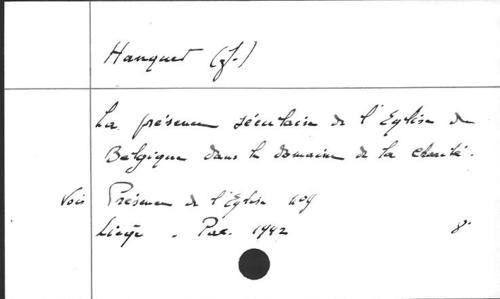 Hanquet (J.)
La présence séculaire de l'Eglise de
Belgique dans le domaine de la charité.
Voir Présence de l'Eglise
Liège - 1942 8°